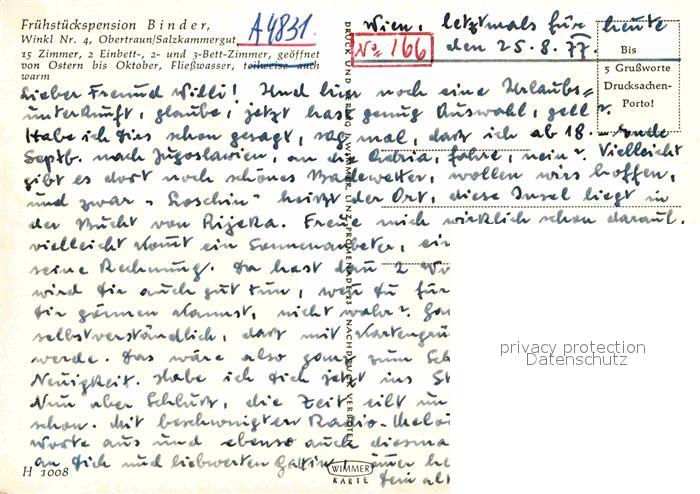 Frühstückspension Binder,
Winkl Nr. 4, Obertraun/Salzkammergut
15 Zimmer, 2 Einbett-, 2- und 3-Bett-Zimmer, geöffnet
von Ostern bis Oktober, Fließwasser, teilweise auch
warm
A4831.
No 166
Wien, letztmals für heute
den 25.8.77.
Bis
5 Grußworte
Drucksachen-
Porto!
Lieber Freund Willi! Und hier noch eine Urlaubs=
unterkunft, glaube, jetzt hast genug Auswahl, gell?
Habe ich Dir's schon gesagt, sag mal, daß ich ab 18. - Ende
Septb. nach Jugoslawien, an die Adria, fahre, nein? Vielleicht
gibt es dort noch schönes Badewetter, wollen wir's hoffen,
und zwar "Loschin" heißt der Ort, diese Insel liegt in
der Bucht von Rijeka. Freue mich wirklich schon darauf.
vielleicht kommt ein Sonnenanbeter, ein
seine Rechnung. Da hast dann 2
wird Dir auch gut tun, wenn du für
Dir gönnen kannst, nicht wahr?
selbstverständlich, daß mit Kartengrü
werde. Das wäre also ganz zum
Neuigkeit. Habe ich Dich jetzt ins
Nun aber Schluß, die Zeit eilt
schon. Mit beschwingten Radio-Melo
Worte aus und ebenso auch diesma
an Dich und liebwerten Gattin
Dein al
H 1008
DRUCK UND VERLAG J. WIMMER, LINZ, PROMENADE 23 NACHDRUCK VERBOTEN
WIMMER
KARTE
privacy protection
Datenschutz